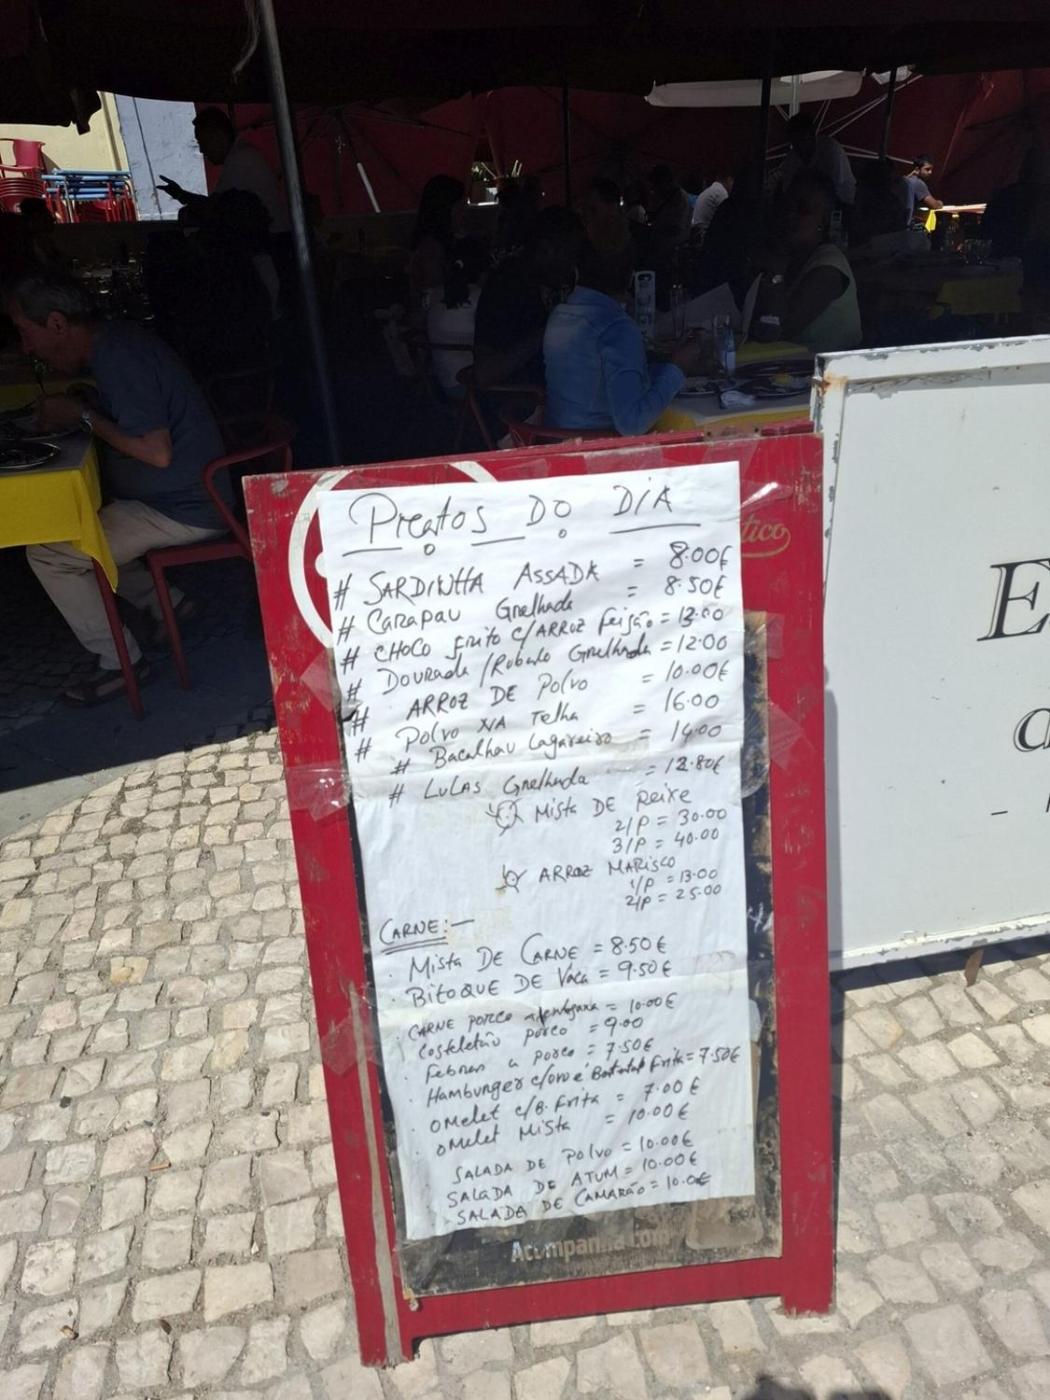 Pratos Do DiA
# SARDINHA ASSADA = 8.00€
# CARAPAU Grelhada = 8.50€
# CHOCO frito c/ARROZ feijão = 13.00
# DOURADA /Robalo Grelhada = 12.00
# ARROZ DE Polvo = 10.00€
# Polvo NA Telha = 16.00
# Bacalhau Lagareiro = 14.00
# LULAS Grelhada = 12.80€
Mista DE Peixe
2/P = 30.00
3/P = 40.00
ARROZ MARisco
1/P = 13.00
2/P = 25.00
CARNE:-
Mista DE CARNE = 8.50€
BiTOQUE DE Vaca = 9.50€
CARNE porco alentejana = 10.00€
Costeletão porco = 9.00
febras porco = 7.50€
Hamburger c/ovo e Batata frita = 7.50€
OMelet c/B. frita = 7.00€
OMelet Mista = 10.00€
SALADA DE Polvo = 10.00€
SALADA DE ATUM = 10.00€
SALADA DE CAMARÃO = 10.0€
tico
Acompanha com
E